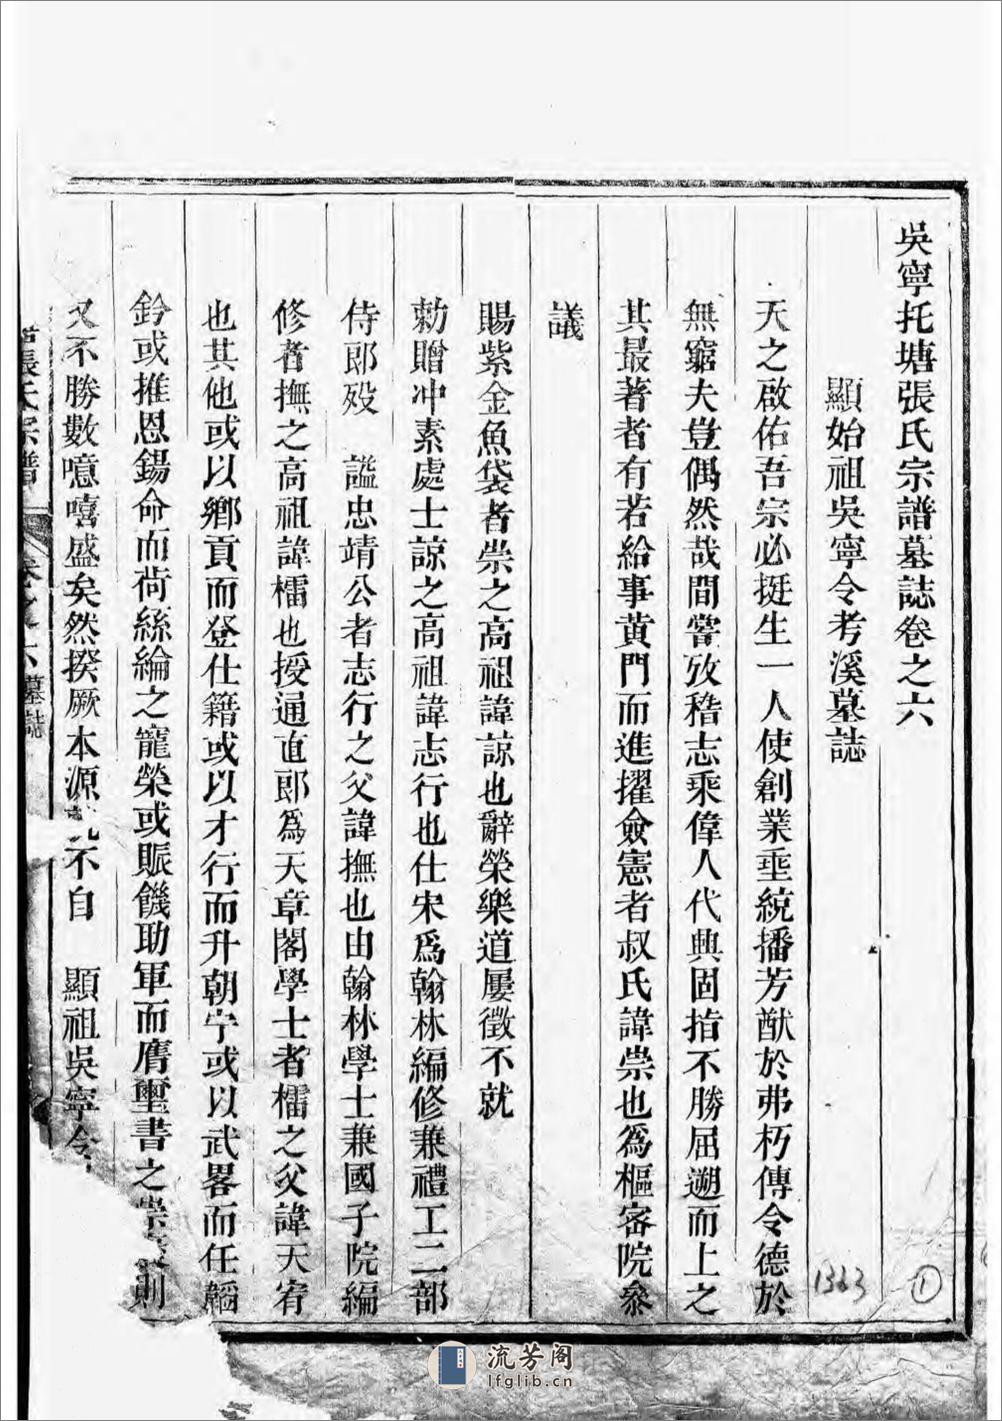 吳寧托塘張氏宗譜墓誌卷之六
顯始祖吳寧令考溪墓誌
天之啟佑吾宗必挺生一人使創業垂統播芳猷於弗朽傳令德於
無窮夫豈偶然哉間嘗攷稽志乘偉人代興固指不勝屈遡而上之
其最著者有若給事黃門而進擢僉憲者叔氏諱崇也爲樞密院叅
議
賜紫金魚袋者崇之高祖諱諒也辭榮樂道屢徵不就
勅贈冲素處士諒之高祖諱志行也仕宋爲翰林編修兼禮工二部
侍郎殁 謚忠靖公者志行之父諱撫也由翰林學士兼國子院編
修者撫之高祖諱櫺也授通直郎爲天章閣學士者櫺之父諱天宥
也其他或以鄉貢而登仕籍或以才行而升朝宁或以武畧而任韜
鈐或推恩錫命而荷絲綸之寵榮或賑饑助軍而膺璽書之崇則
又不勝數噫嘻盛矣然揆厥本源不自 顯祖吳寧令
張氏宗譜 卷之六 墓誌
1363
①
流芳阁
lfglib.cn